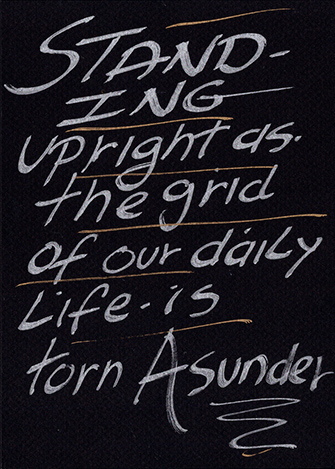 STAND-
ING
upright as.
the grid
of our daily
Life-is
torn Asunder